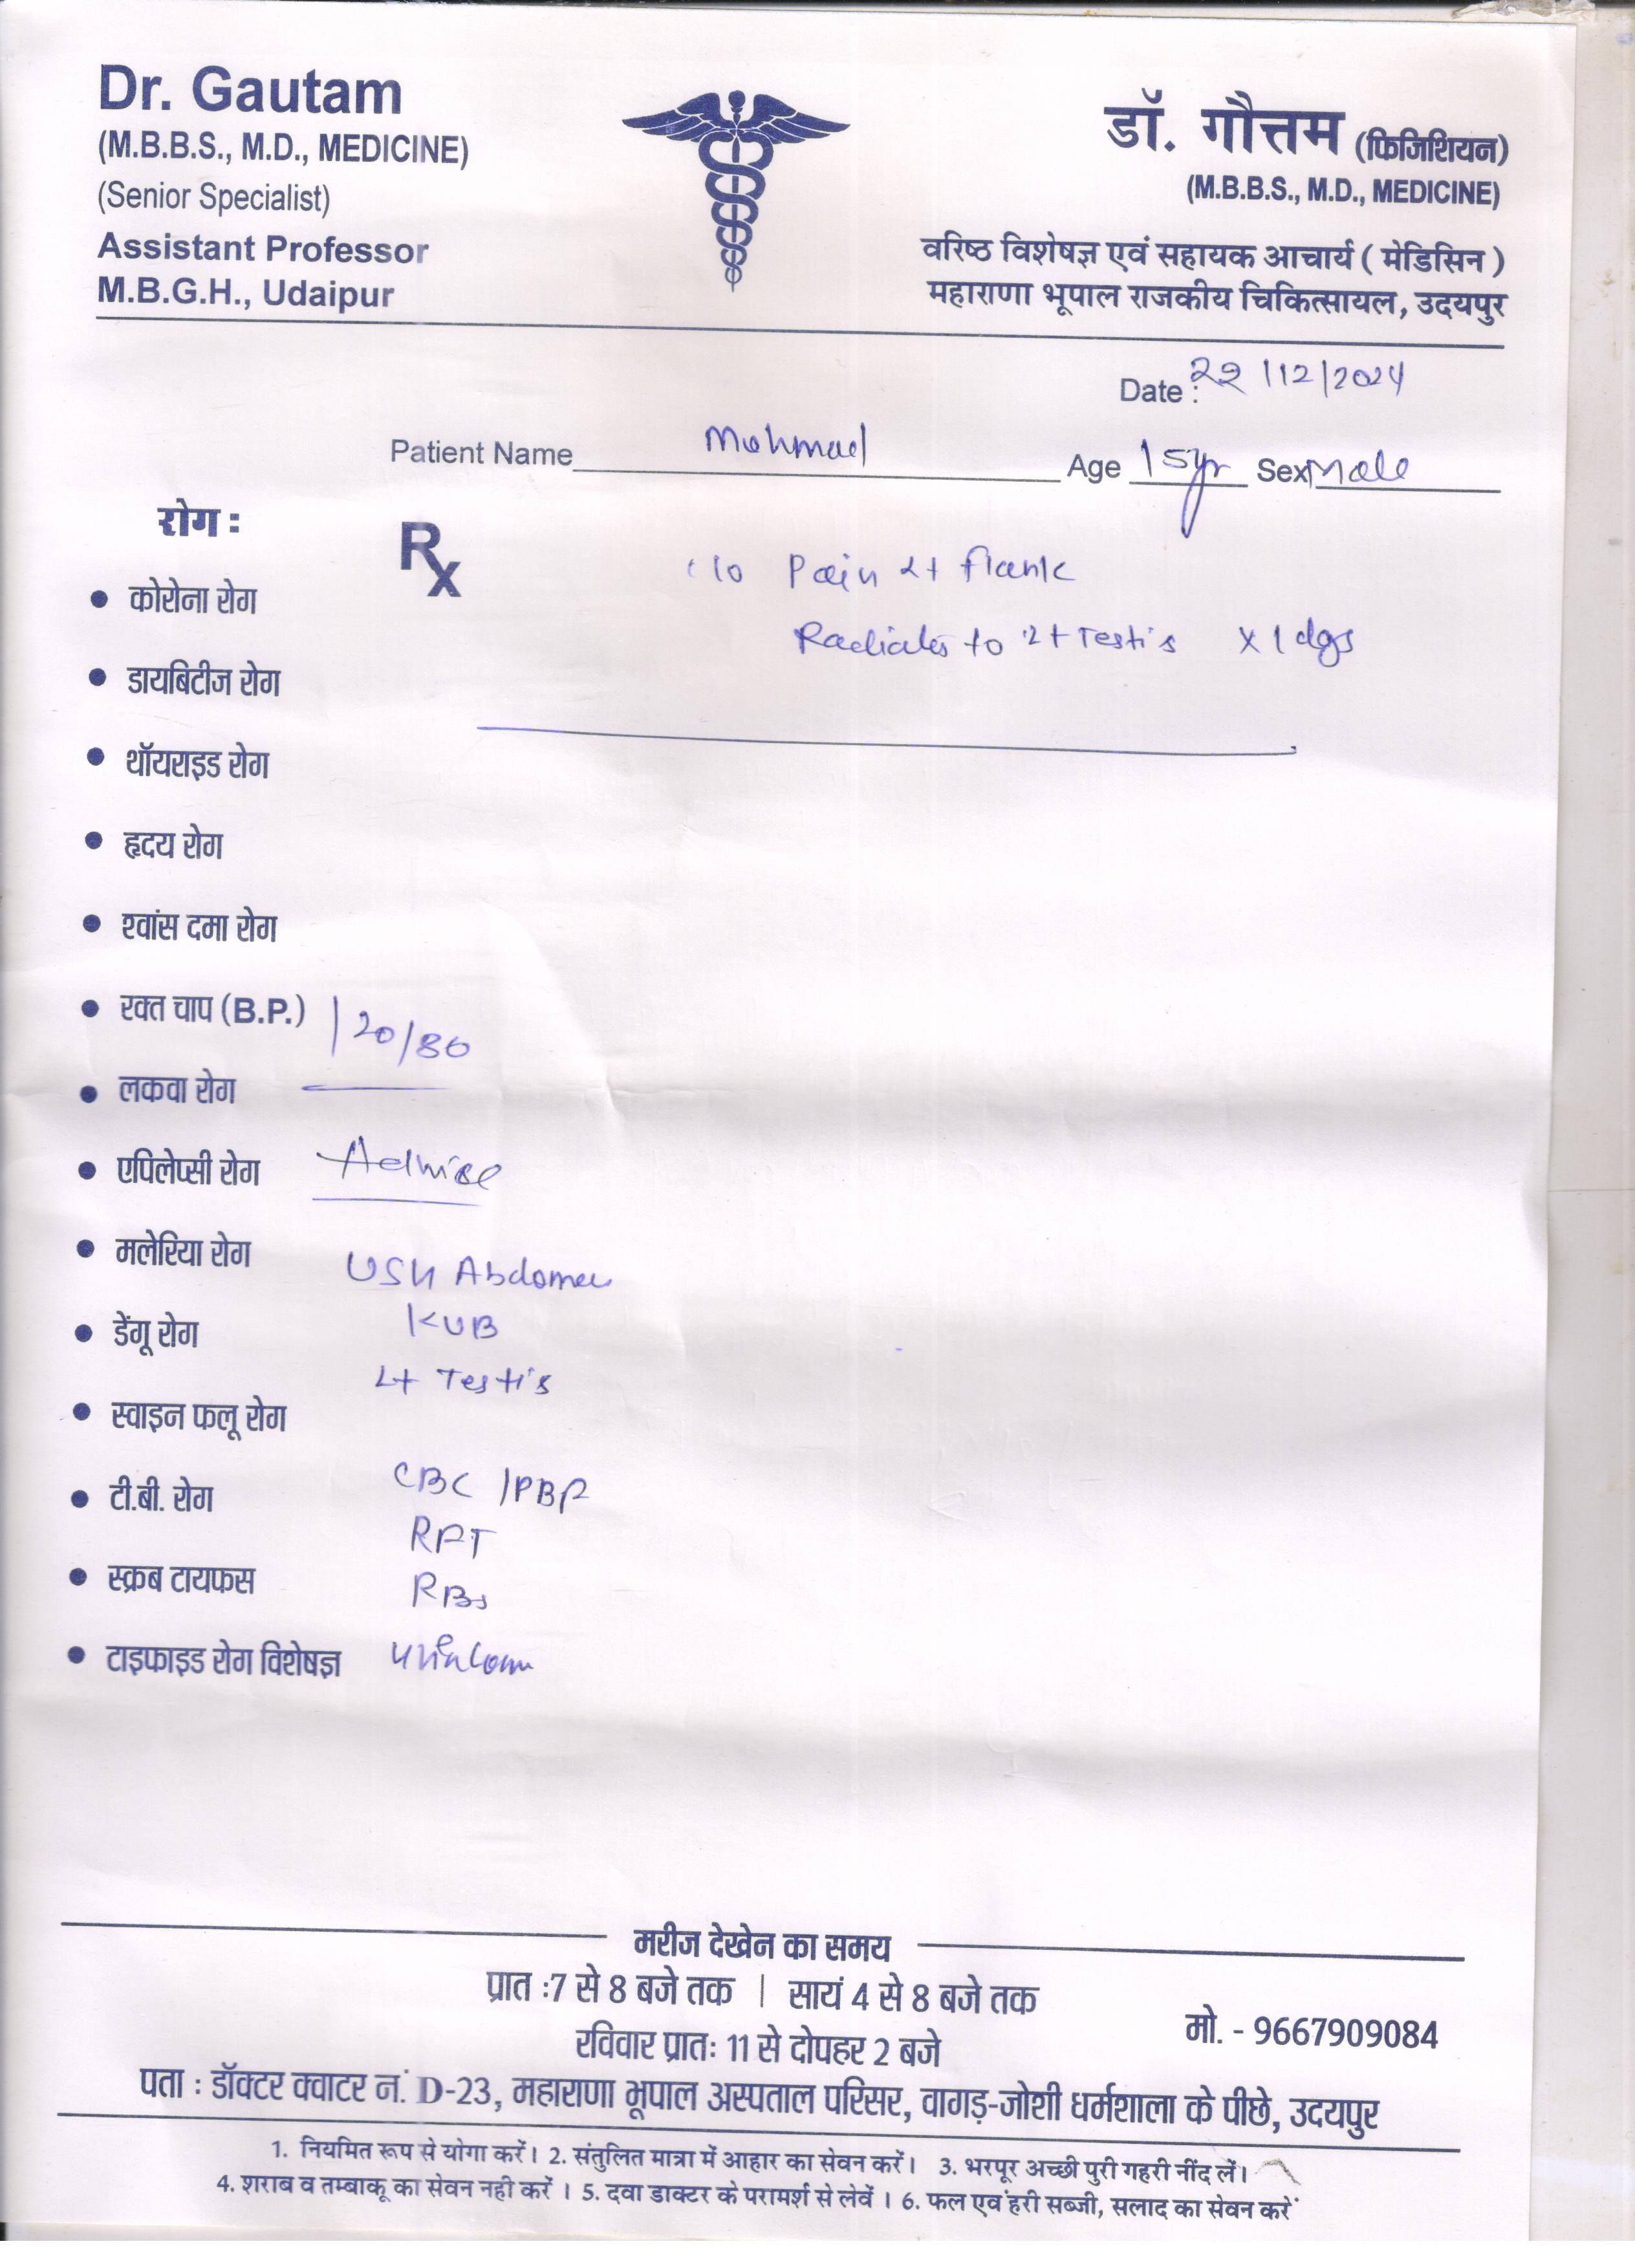 Dr. Gautam
(M.B.B.S., M.D., MEDICINE)
(Senior Specialist)
Assistant Professor
M.B.G.H., Udaipur
डॉ. गौत्तम (फिजिशियन)
(M.B.B.S., M.D., MEDICINE)
वरिष्ठ विशेषज्ञ एवं सहायक आचार्य ( मेडिसिन )
महाराणा भूपाल राजकीय चिकित्सायल, उदयपुर
Date : 22/12/2024
Patient Name Mohmad Age 15yr Sex Male
रोग :
Rx
c/o Pain Lt flank
Radiates to Lt Testis x 1 dys
• कोरोना रोग
• डायबिटीज रोग
• थॉयराइड रोग
• हृदय रोग
• श्वांस दमा रोग
• रक्त चाप (B.P.) 120/80
• लकवा रोग
• एपिलेप्सी रोग Advise
• मलेरिया रोग
USG Abdomen
KUB
• डेंगू रोग
Lt Testis
• स्वाइन फलू रोग
CBC / PBF
• टी.बी. रोग
RFT
• स्क्रब टायफस
RBS
• टाइफाइड रोग विशेषज्ञ
मरीज देखेन का समय
प्रात :7 से 8 बजे तक | सायं 4 से 8 बजे तक
रविवार प्रातः 11 से दोपहर 2 बजे
मो. - 9667909084
पता : डॉक्टर क्वाटर नं. D-23, महाराणा भूपाल अस्पताल परिसर, वागड़-जोशी धर्मशाला के पीछे, उदयपुर
1. नियमित रूप से योगा करें। 2. संतुलित मात्रा में आहार का सेवन करें। 3. भरपूर अच्छी पुरी गहरी नींद लें।
4. शराब व तम्बाकू का सेवन नही करें । 5. दवा डाक्टर के परामर्श से लेवें । 6. फल एवं हरी सब्जी, सलाद का सेवन करें